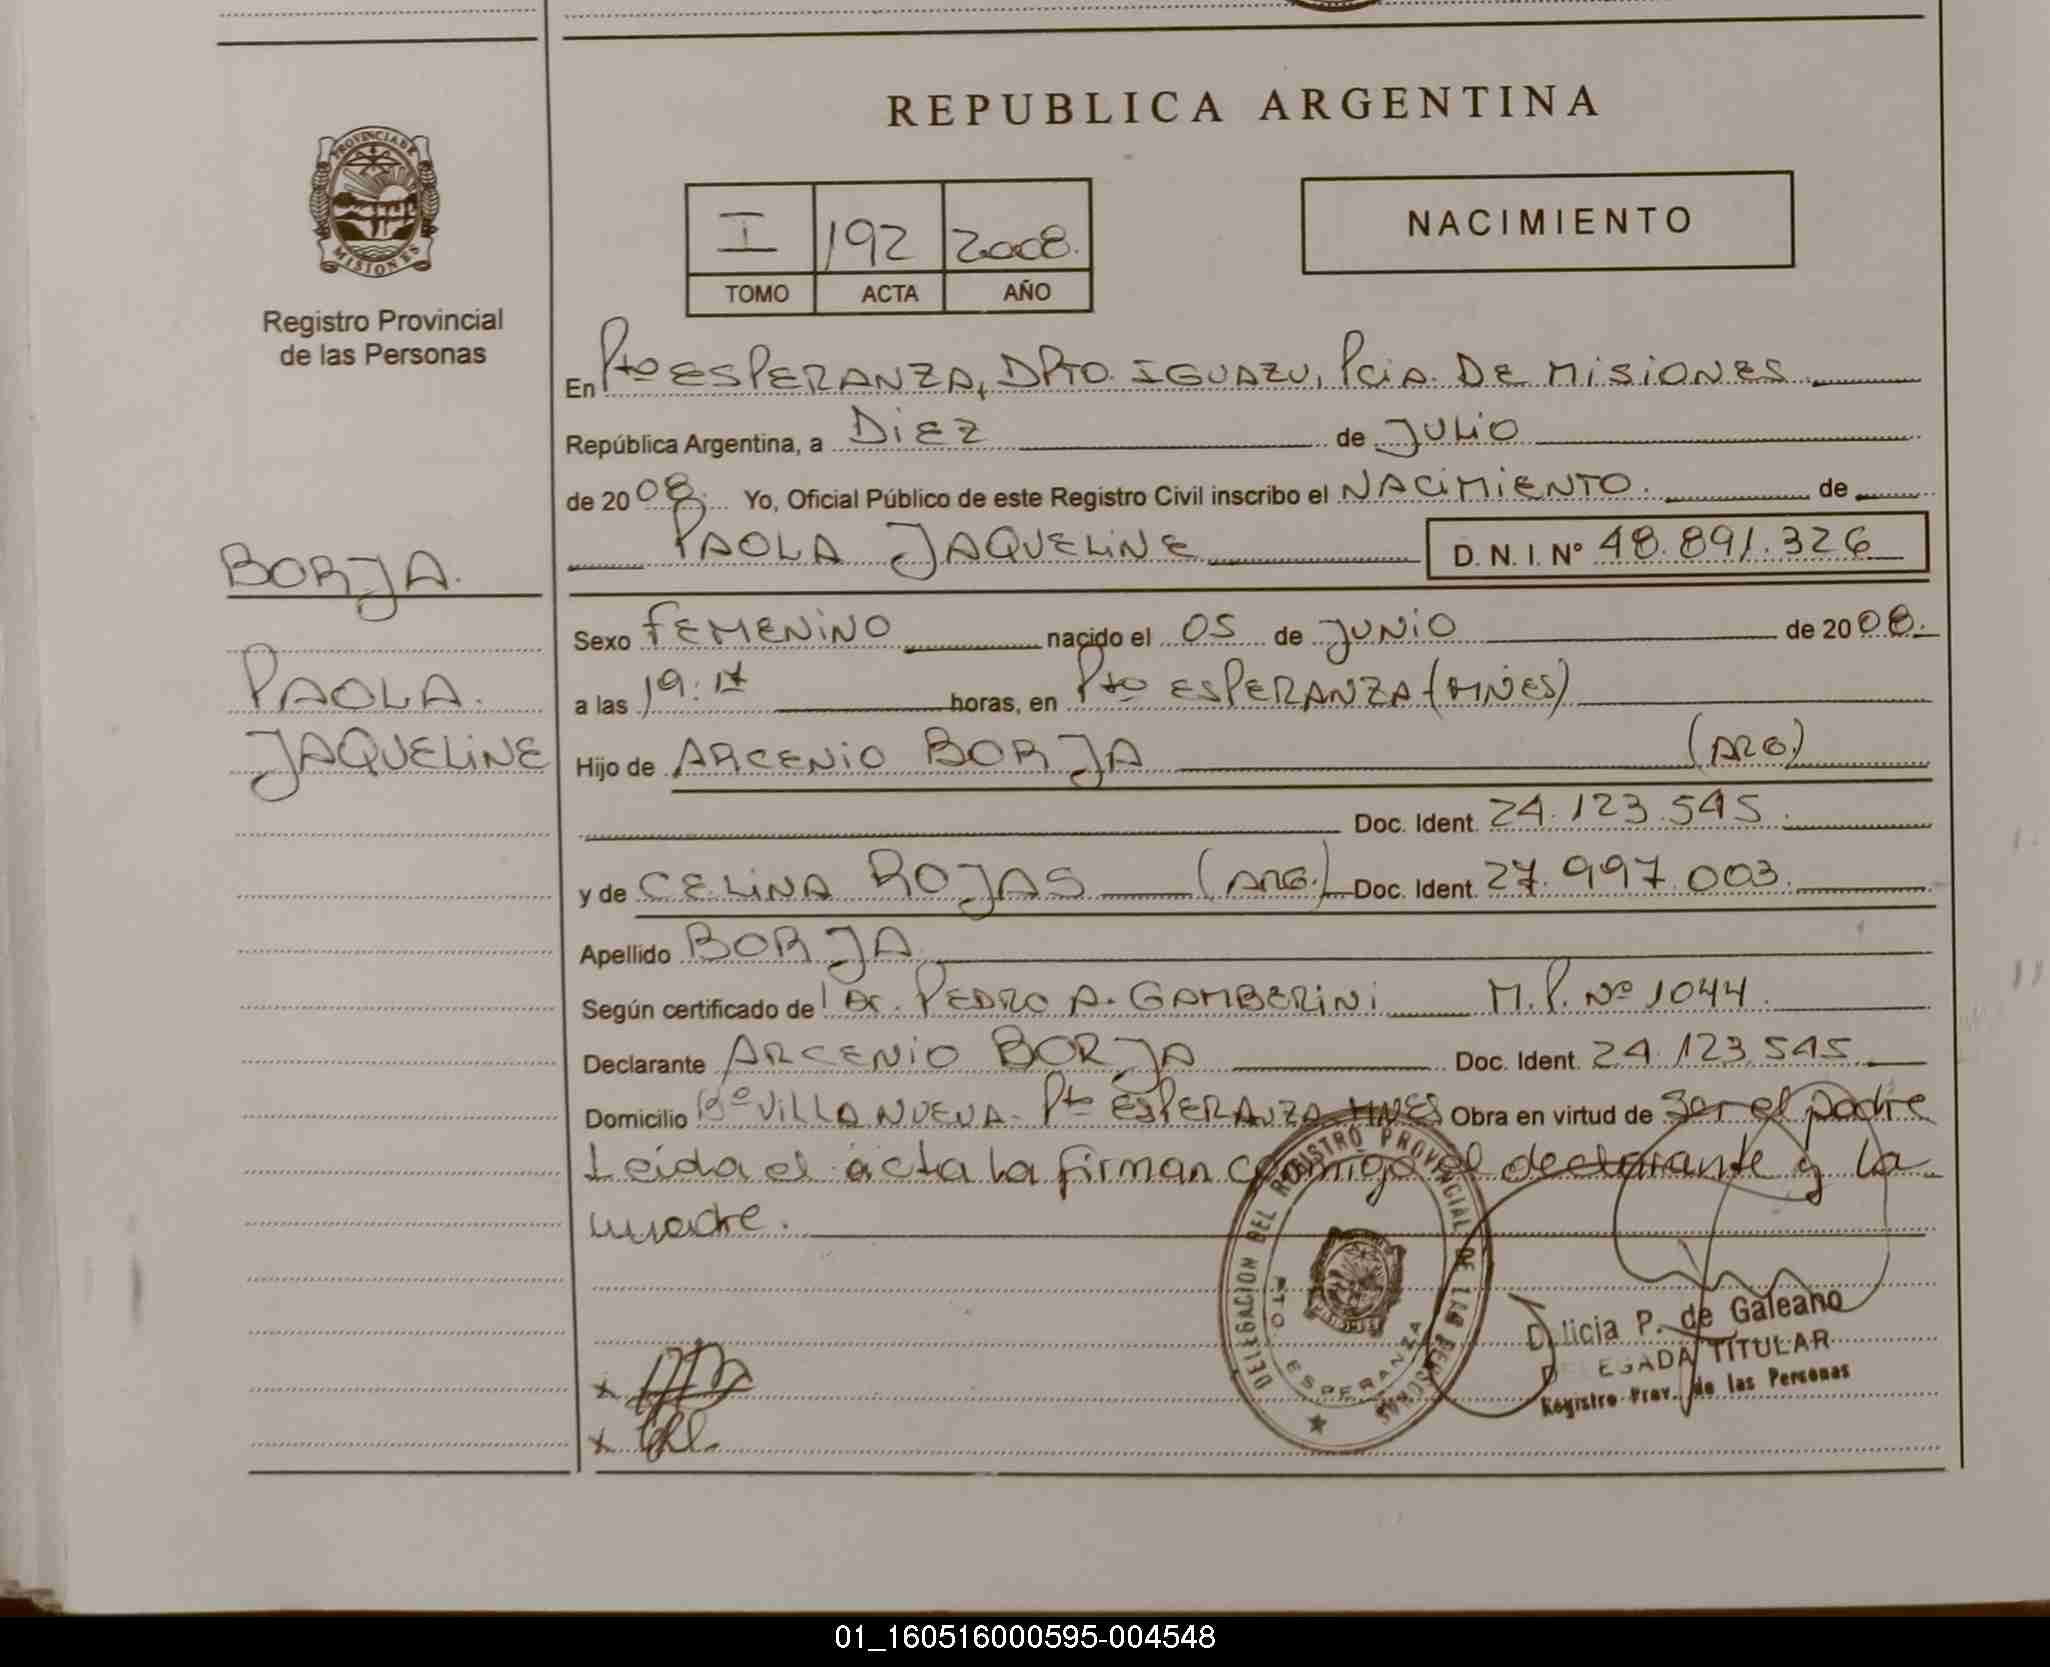 PROVINCIA DE
MISIONES
Registro Provincial
de las Personas
BORJA.
PAOLA.
JAQUELINE
REPUBLICA ARGENTINA
I 192 2008.
TOMO ACTA AÑO
NACIMIENTO
En Pto ESPERANZA, DPTO. IGUAZU, PCIA. DE MISIONES
República Argentina, a DIEZ de JULIO
de 2008. Yo, Oficial Público de este Registro Civil inscribo el NACIMIENTO. de
PAOLA JAQUELINE D. N. I. Nº 48.891.326
Sexo FEMENINO nacido el 05 de JUNIO de 2008.
a las 19:17 horas, en Pto ESPERANZA (MNES)
Hijo de ARCENIO BORJA (ARG.)
Doc. Ident. 24.123.545.
y de CELINA ROJAS (ARG.) Doc. Ident. 27.997.003.
Apellido BORJA
Según certificado de Dr. PEDRO A. GAMBERINI M.P. Nº 1044.
Declarante ARCENIO BORJA Doc. Ident. 24.123.545.
Domicilio Bº VILLA NUEVA - Pto ESPERANZA MNES Obra en virtud de Ser el padre
Leida el acta la firman conmigo el declarante y la
madre.
DELEGACION DEL REGISTRO PROVINCIAL DE LAS PERSONAS
PTO. ESPERANZA
licia P. de Galeano
DELEGADA TITULAR
Registro Prov. de las Personas
01_160516000595-004548